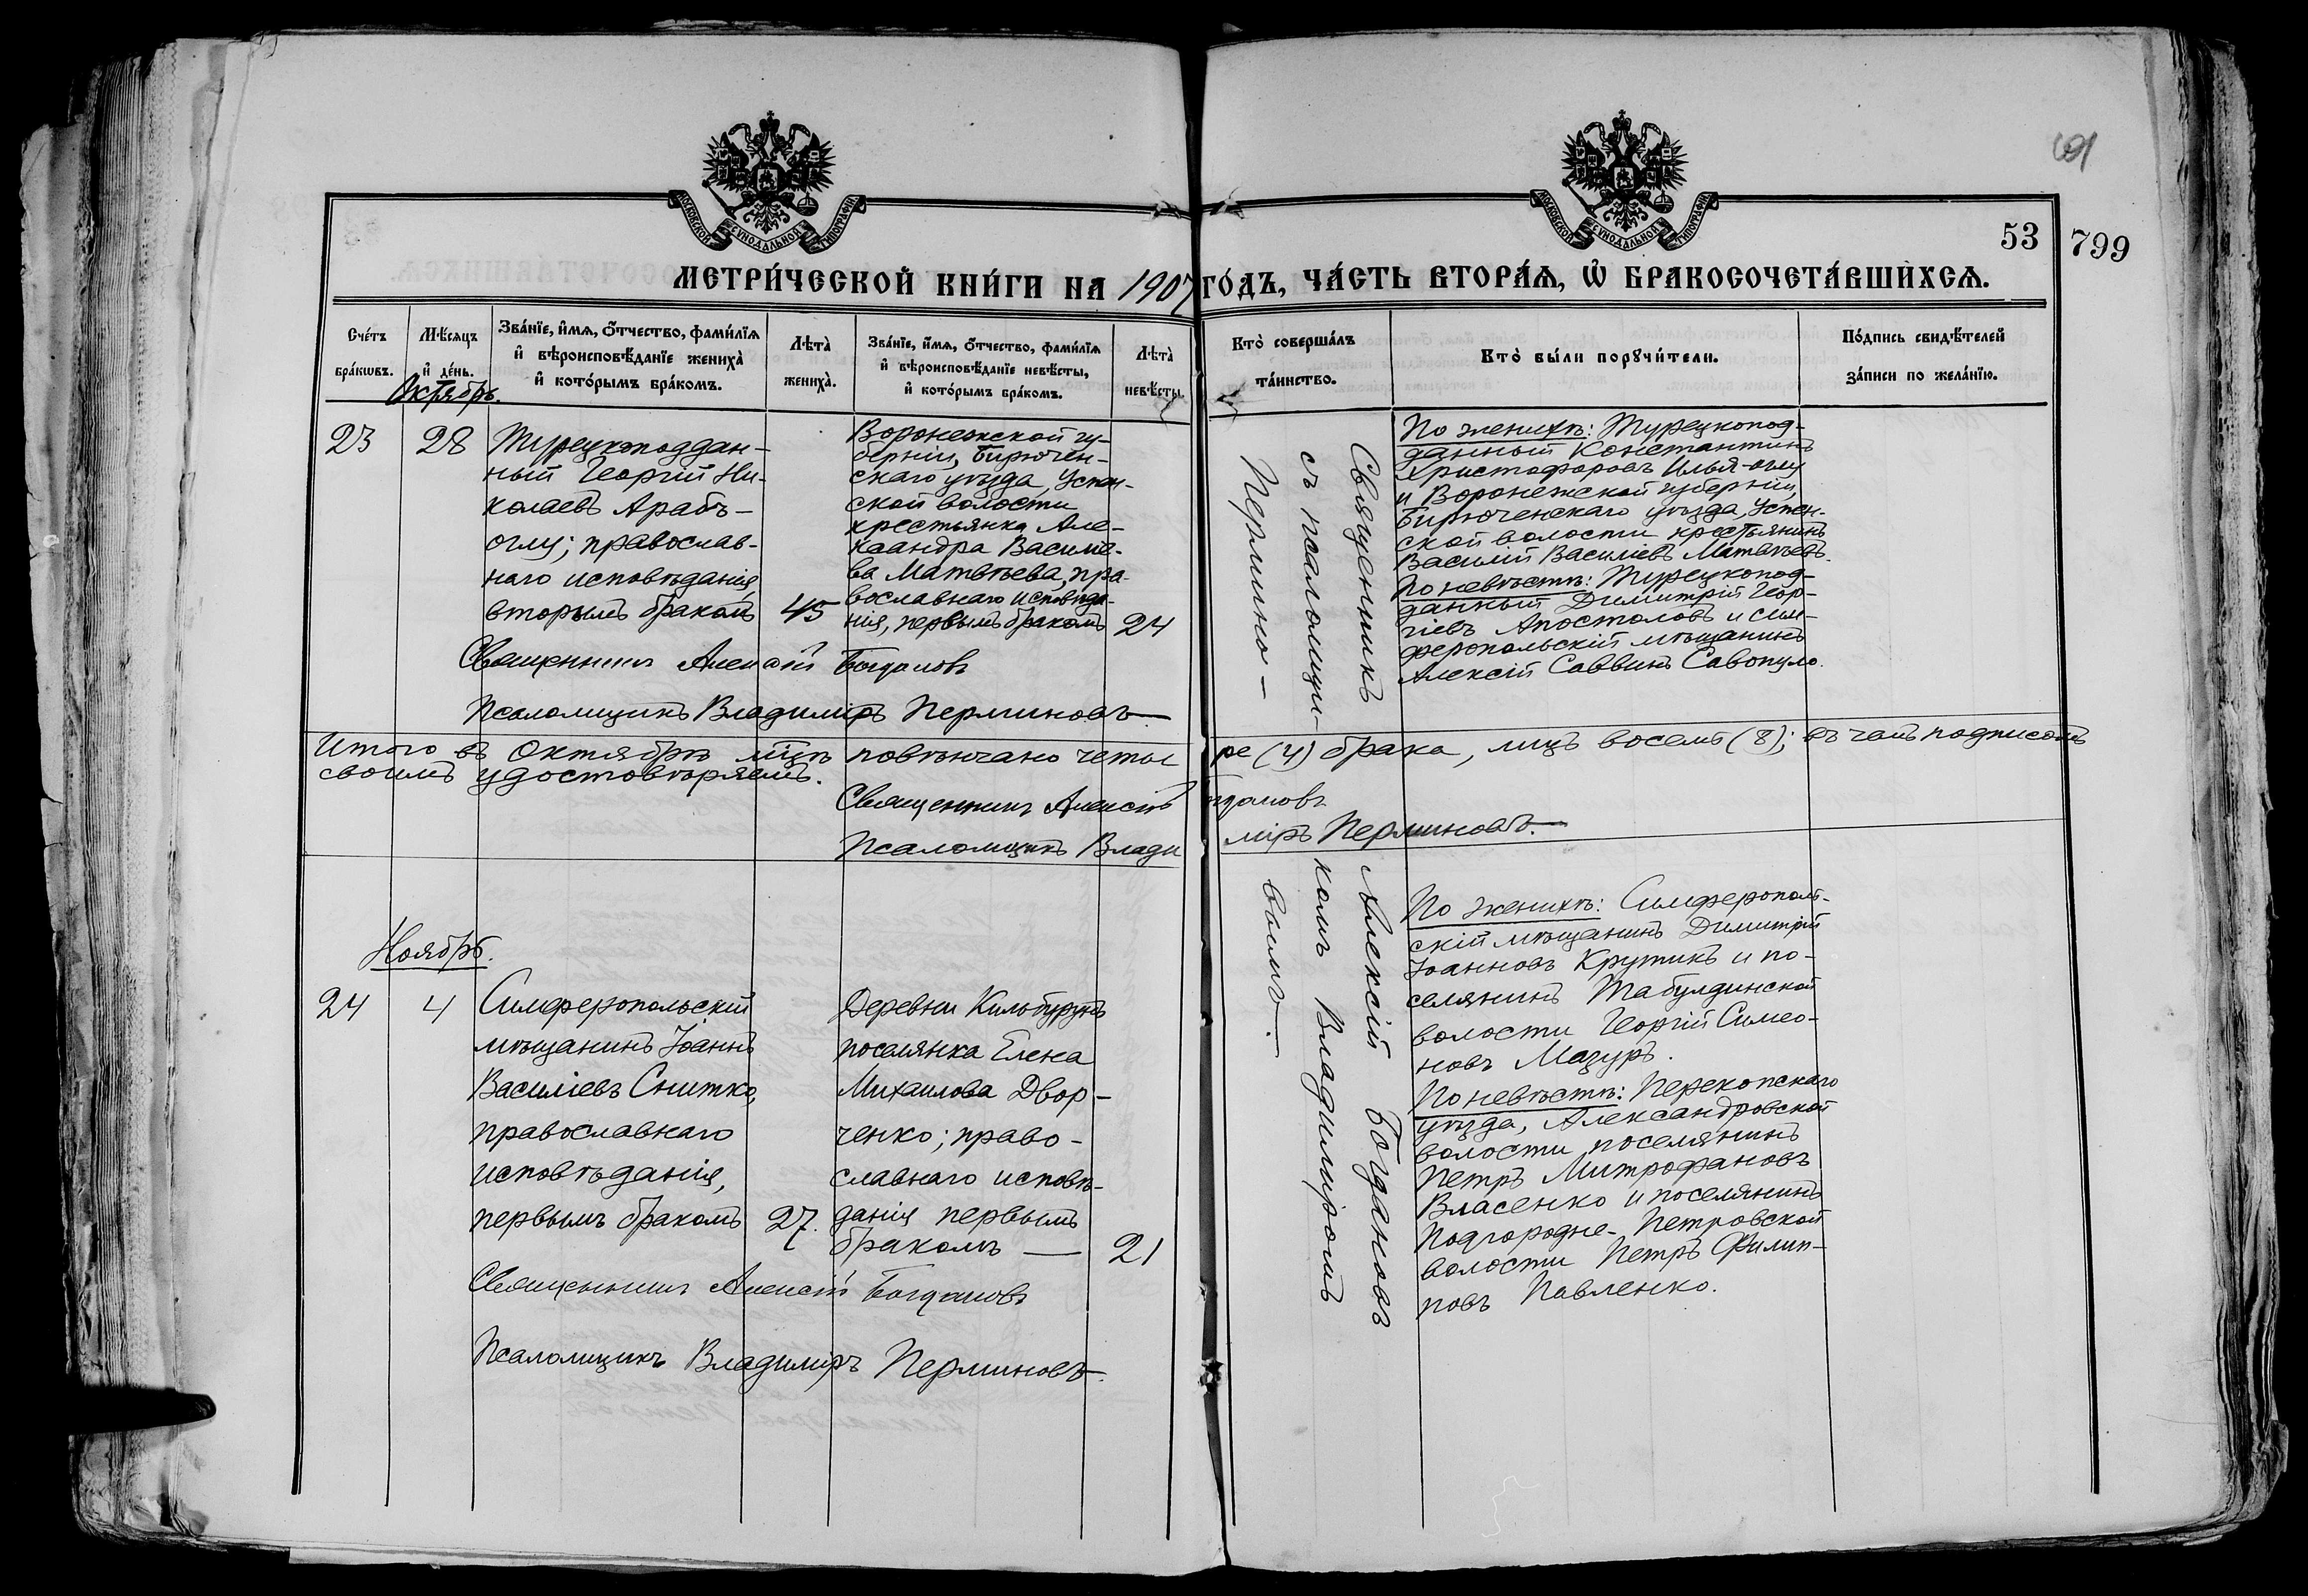 МОСКОВСКОЙ СѴНОДАЛЬНОЙ ТИПОГРАФІИ
МОСКОВСКОЙ СѴНОДАЛЬНОЙ ТИПОГРАФІИ
53
799
МЕТРИ́ЧЕСКОЙ КНИ́ГИ НА 1907 ГО́ДЪ, ЧА́СТЬ ВТОРА́Я, Ѽ БРАКОСОЧЕТА́ВШИХСЯ.
Сче́тъ
бра́кѡвъ.
Мѣ́сяцъ
и҆ де́нь.
Зва́нїе, и҆́мя, ѻ҆́тчество, фами́лїя
и҆ вѣроисповѣ́данїе жениха̀
и҆ кото́рымъ бра́комъ.
Лѣта̀
жениха̀.
Зва́нїе, и҆́мя, ѻ҆́тчество, фами́лїя
и҆ вѣроисповѣ́данїе невѣ́сты,
и҆ кото́рымъ бра́комъ.
Лѣта̀
невѣ́сты.
Кто̀ соверша́лъ
та́инство.
Кто̀ бы́ли порꙋчи́тели.
По́дпись свидѣ́телей
за́писи по жела́нїю.
Октябрь.
23
28
Турецкоподдан-
ный Георгій Ни-
колаевъ Арабъ-
оглу; православ-
наго исповѣданія,
вторымъ бракомъ
45
Воронежской гу-
берніи, Бирючен-
скаго уѣзда, Успен-
ской волости
крестьянка Але-
ксандра Василіе-
ва Матвѣева, пра-
вославнаго исповѣда-
нія, первымъ бракомъ
24
Священникъ
съ псаломщи-
Перминo-
По женихѣ: Турецкопод-
данный Константинъ
Христофоровъ Илья-оглу
и Воронежской губерніи,
Бирюченскаго уѣзда, Успен-
ской волости крестьянинъ
Василій Василіевъ Матвѣевъ.
По невѣстѣ: Турецкопод-
данный Димитрій Геор-
гіевъ Апостоловъ и сим-
феропольскій мѣщанинъ
Алексій Саввинъ Савопуло.
Священникъ Алексій Богдановъ
Псаломщикъ Владиміръ Перминовъ
Итого въ Октябрѣ м҃цѣ повѣнчано четы ре (4) брака, лицъ восемь (8); въ чемъ подписомъ
своимъ удостовѣряемъ.
Священникъ Алексій Богдановъ
Псаломщикъ Влади міръ Перминовъ.
Ноябрь.
24
4
Симферопольскій
мѣщанинъ Іоаннъ
Василіевъ Снитко,
православнаго
исповѣданія,
первымъ бракомъ
27.
Деревни Кильбурунъ
поселянка Елена
Михаилова Двор-
ченко; право-
славнаго исповѣ-
данія первымъ
бракомъ
21
Алексій Богдановъ
комъ Владиміромъ
вымъ.
По женихѣ: Симферополь-
скій мѣщанинъ Димитрій
Іоанновъ Крутикъ и по-
селянинъ Табулдинской
волости Георгій Симео-
новъ Мазуръ.
По невѣстѣ: Перекопскаго
уѣзда, Александровской
волости поселянинъ
Петръ Митрофановъ
Власенко и поселянинъ
Подгородне-Петровской
волости Петръ Филип-
повъ Павленко.
Священникъ Алексій Богдановъ
Псаломщикъ Владиміръ Перминовъ.